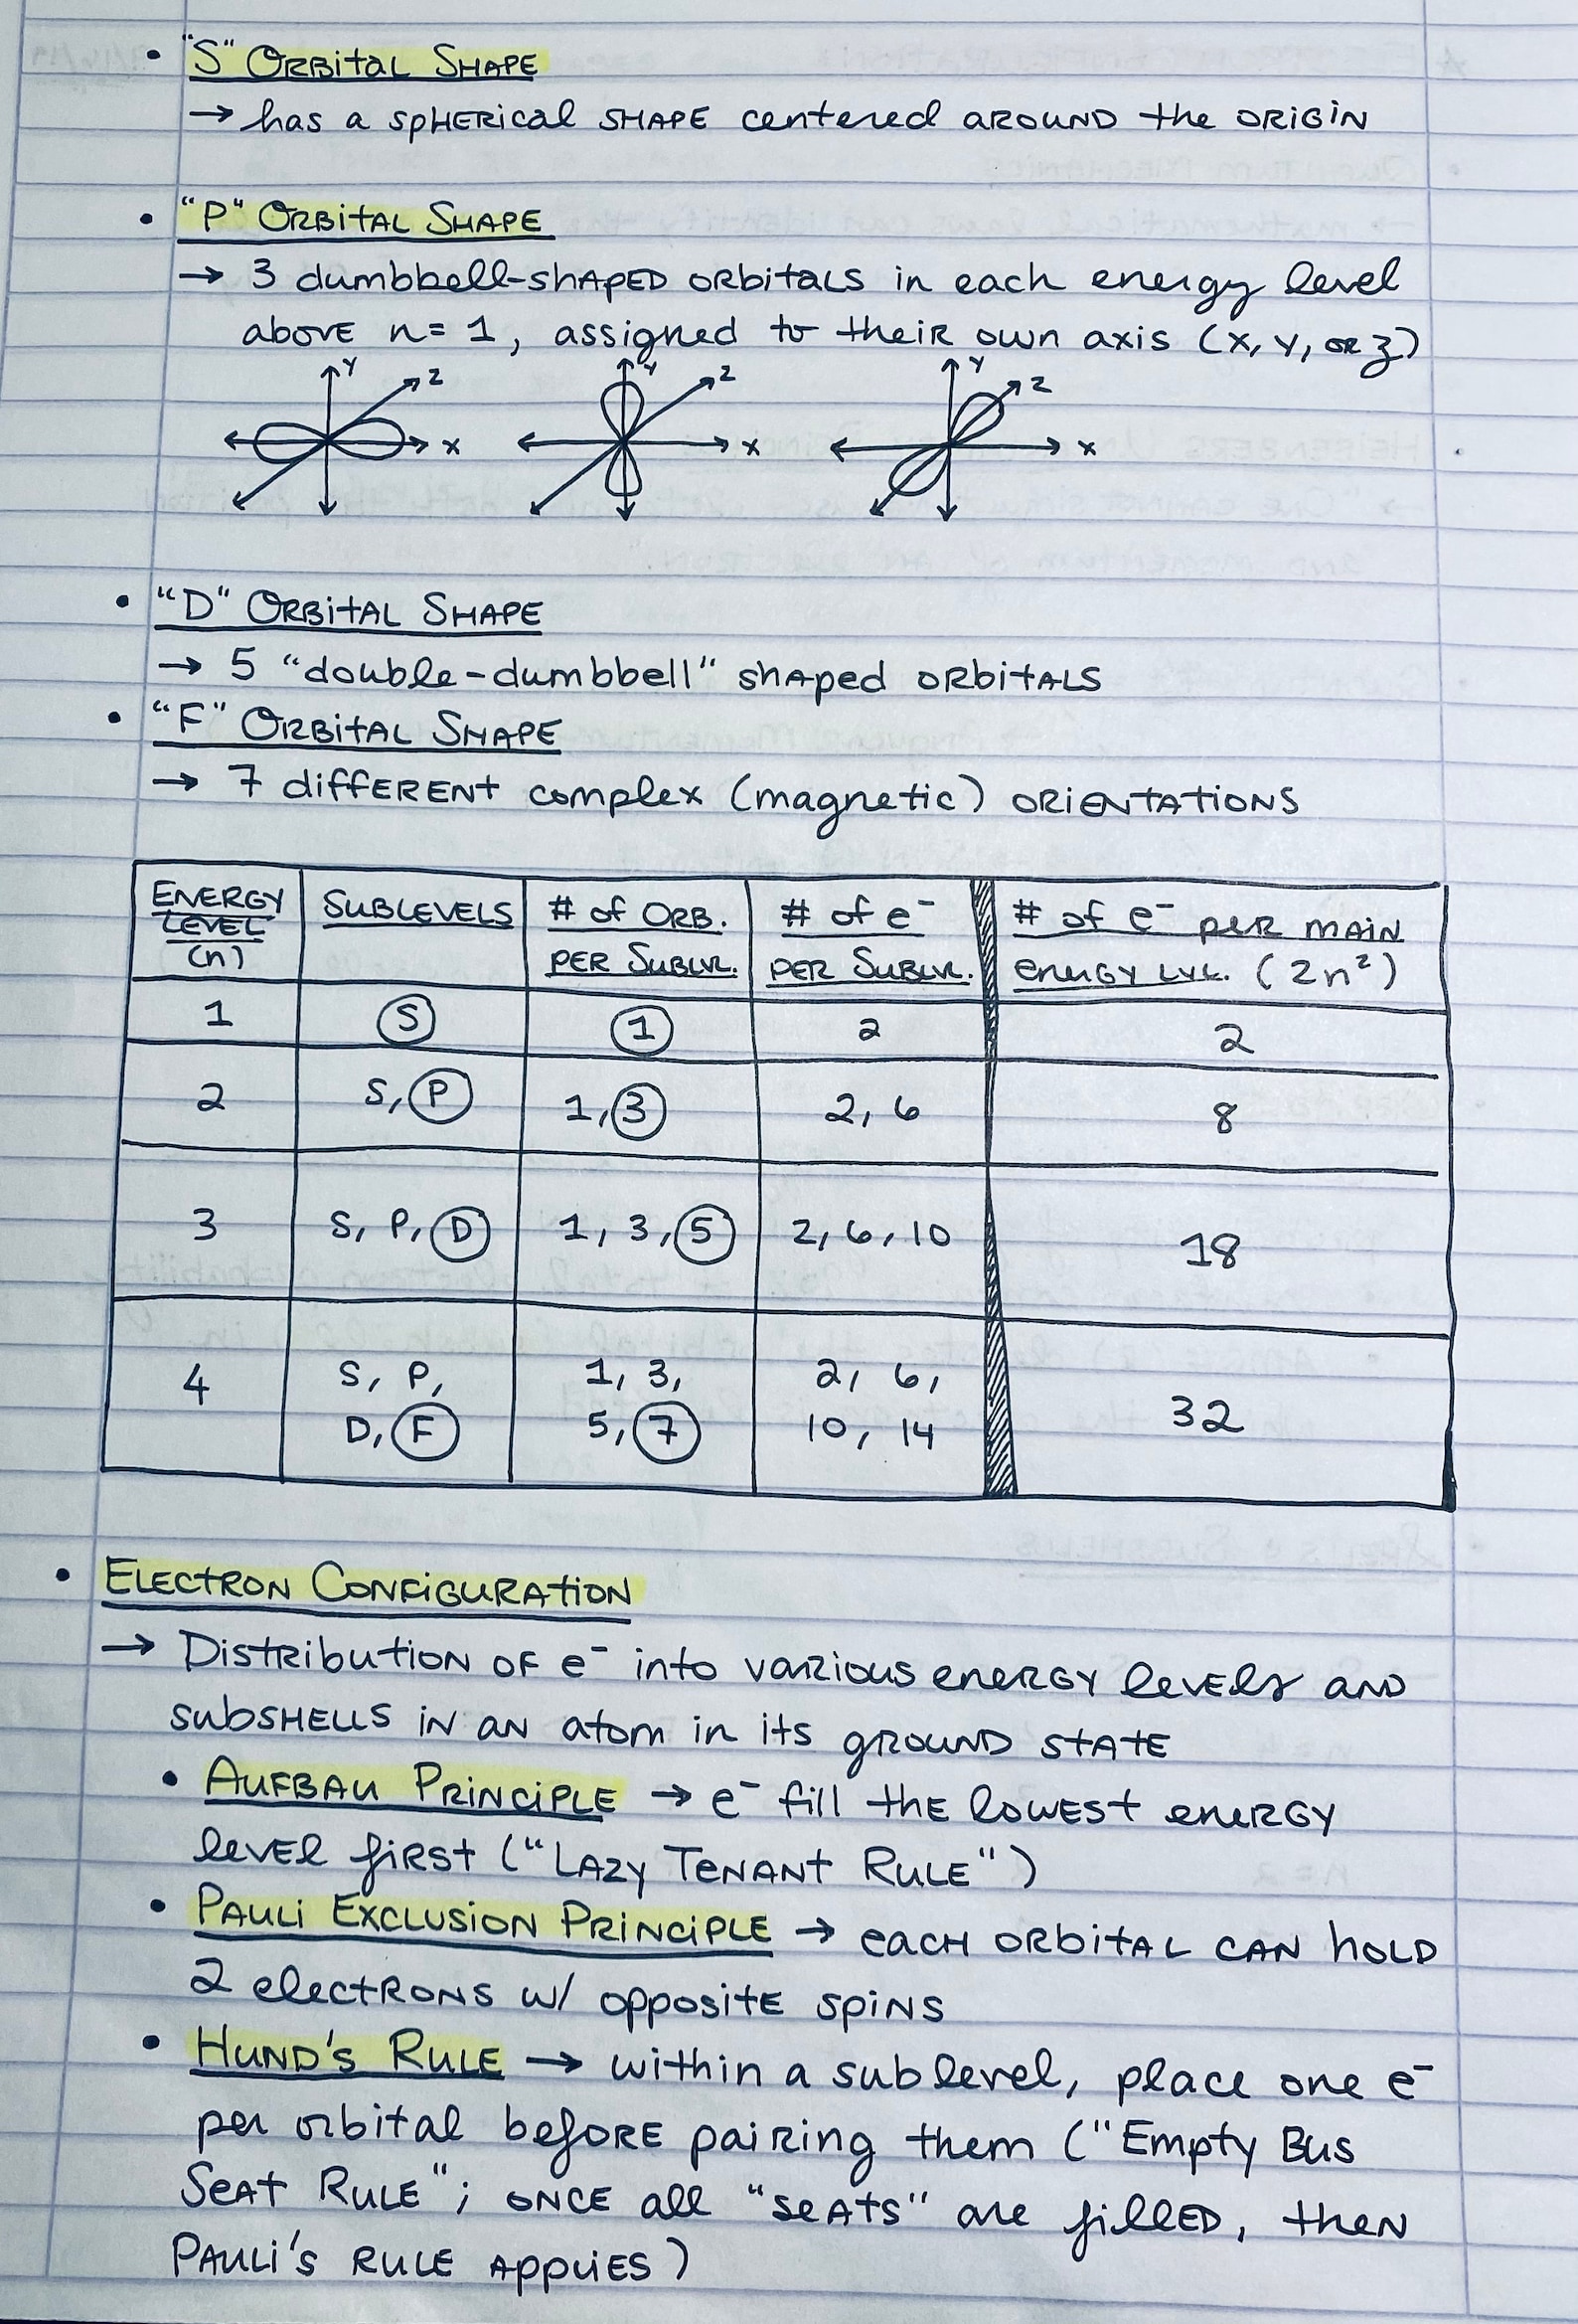 • "S" Orbital Shape
→ has a spherical shape centered around the origin
• "P" Orbital Shape
→ 3 dumbbell-shaped orbitals in each energy level
above n=1, assigned to their own axis (x, y, or z)
Y Z X Y Z X Y Z X
• "D" Orbital Shape
→ 5 "double-dumbbell" shaped orbitals
• "F" Orbital Shape
→ 7 different complex (magnetic) orientations
Energy Level (n) | Sublevels | # of Orb. per Sublvl. | # of e⁻ per Sublvl. | # of e⁻ per main energy lvl. (2n²)
1 | S | 1 | 2 | 2
2 | S, P | 1, 3 | 2, 6 | 8
3 | S, P, D | 1, 3, 5 | 2, 6, 10 | 18
4 | S, P, D, F | 1, 3, 5, 7 | 2, 6, 10, 14 | 32
• Electron Configuration
→ Distribution of e⁻ into various energy levels and
subshells in an atom in its ground state
• Aufbau Principle → e⁻ fill the lowest energy
level first ("Lazy Tenant Rule")
• Pauli Exclusion Principle → each orbital can hold
2 electrons w/ opposite spins
• Hund's Rule → within a sublevel, place one e⁻
per orbital before pairing them ("Empty Bus
Seat Rule"; once all "seats" are filled, then
Pauli's rule applies)